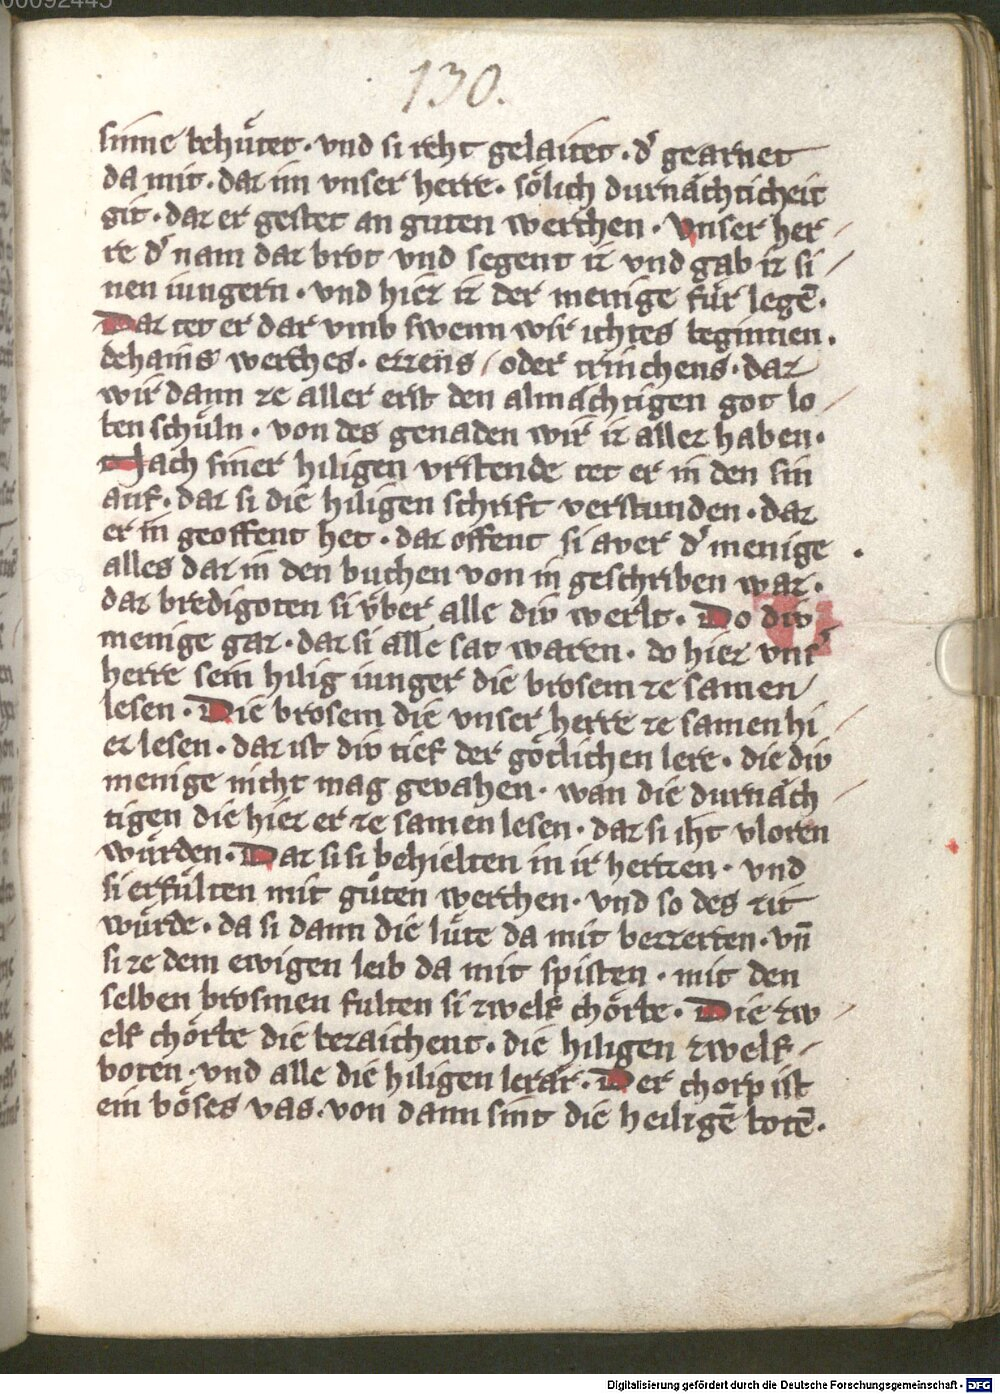 00092445
130.
sinne behuͤtet · vnd si reht gelaitet · d͛ gearnet
da mit · daz im vnser herre · soͤlich durnaͤchticheit
git · daz er gestet an guten werchen · Vnser her
re d͛ nam daz brot vnd segent iz vnd gab iz si
nen iungern · vnd hiez iz der menige fuͤr legē ·
Daz tet er dar vmb swenn wir ichtes beginnen ·
dehains werches · ezzens / oder trinchens · daz
wir dann ze aller erst den almaͤchtigen got lo
ben schuͤln · von des genaden wir iz allez haben ·
Nach siner hiligen vrstende tet er in den sin
auf · daz si die hiligen schrift verstunden · daz
er in geoffent het · daz offent si aver d͛ menige
alles daz in den buchen von in geschriben waz ·
daz bredigoten si vͤber alle div werlt · Do div
menige gaz · daz si alle sat waren · do hiez vns͛
herre sein hilig iunger die brosem ze samen
lesen · Die brosem die vnser herre ze samen hi
ez lesen · daz ist div tief der goͤtlichen lere · die div
menige nicht mag gevahen · wan die durnaͤch
tigen die hiez er ze samen lesen · daz si iht vloren
wuͤrden · Daz si si behielten in ir hertzen · vnd
si erfuͤlten mit guͦten werchen · vnd so des zit
wuͤrde · da si dann die luͤte da mit bezzerten · vn̄
si ze dem ewigen leib da mit spisten · mit den
selben brosmen fulten si zwelf choͤrbe · Die zw
elf choͤrbe die bezaichent · die hiligen zwelf
boten · vnd alle die hiligen leraͤr · Der chorp ist
ein boͤses vas · von dann sint die heiligē botē ·
Digitalisierung gefördert durch die Deutsche Forschungsgemeinschaft · DFG